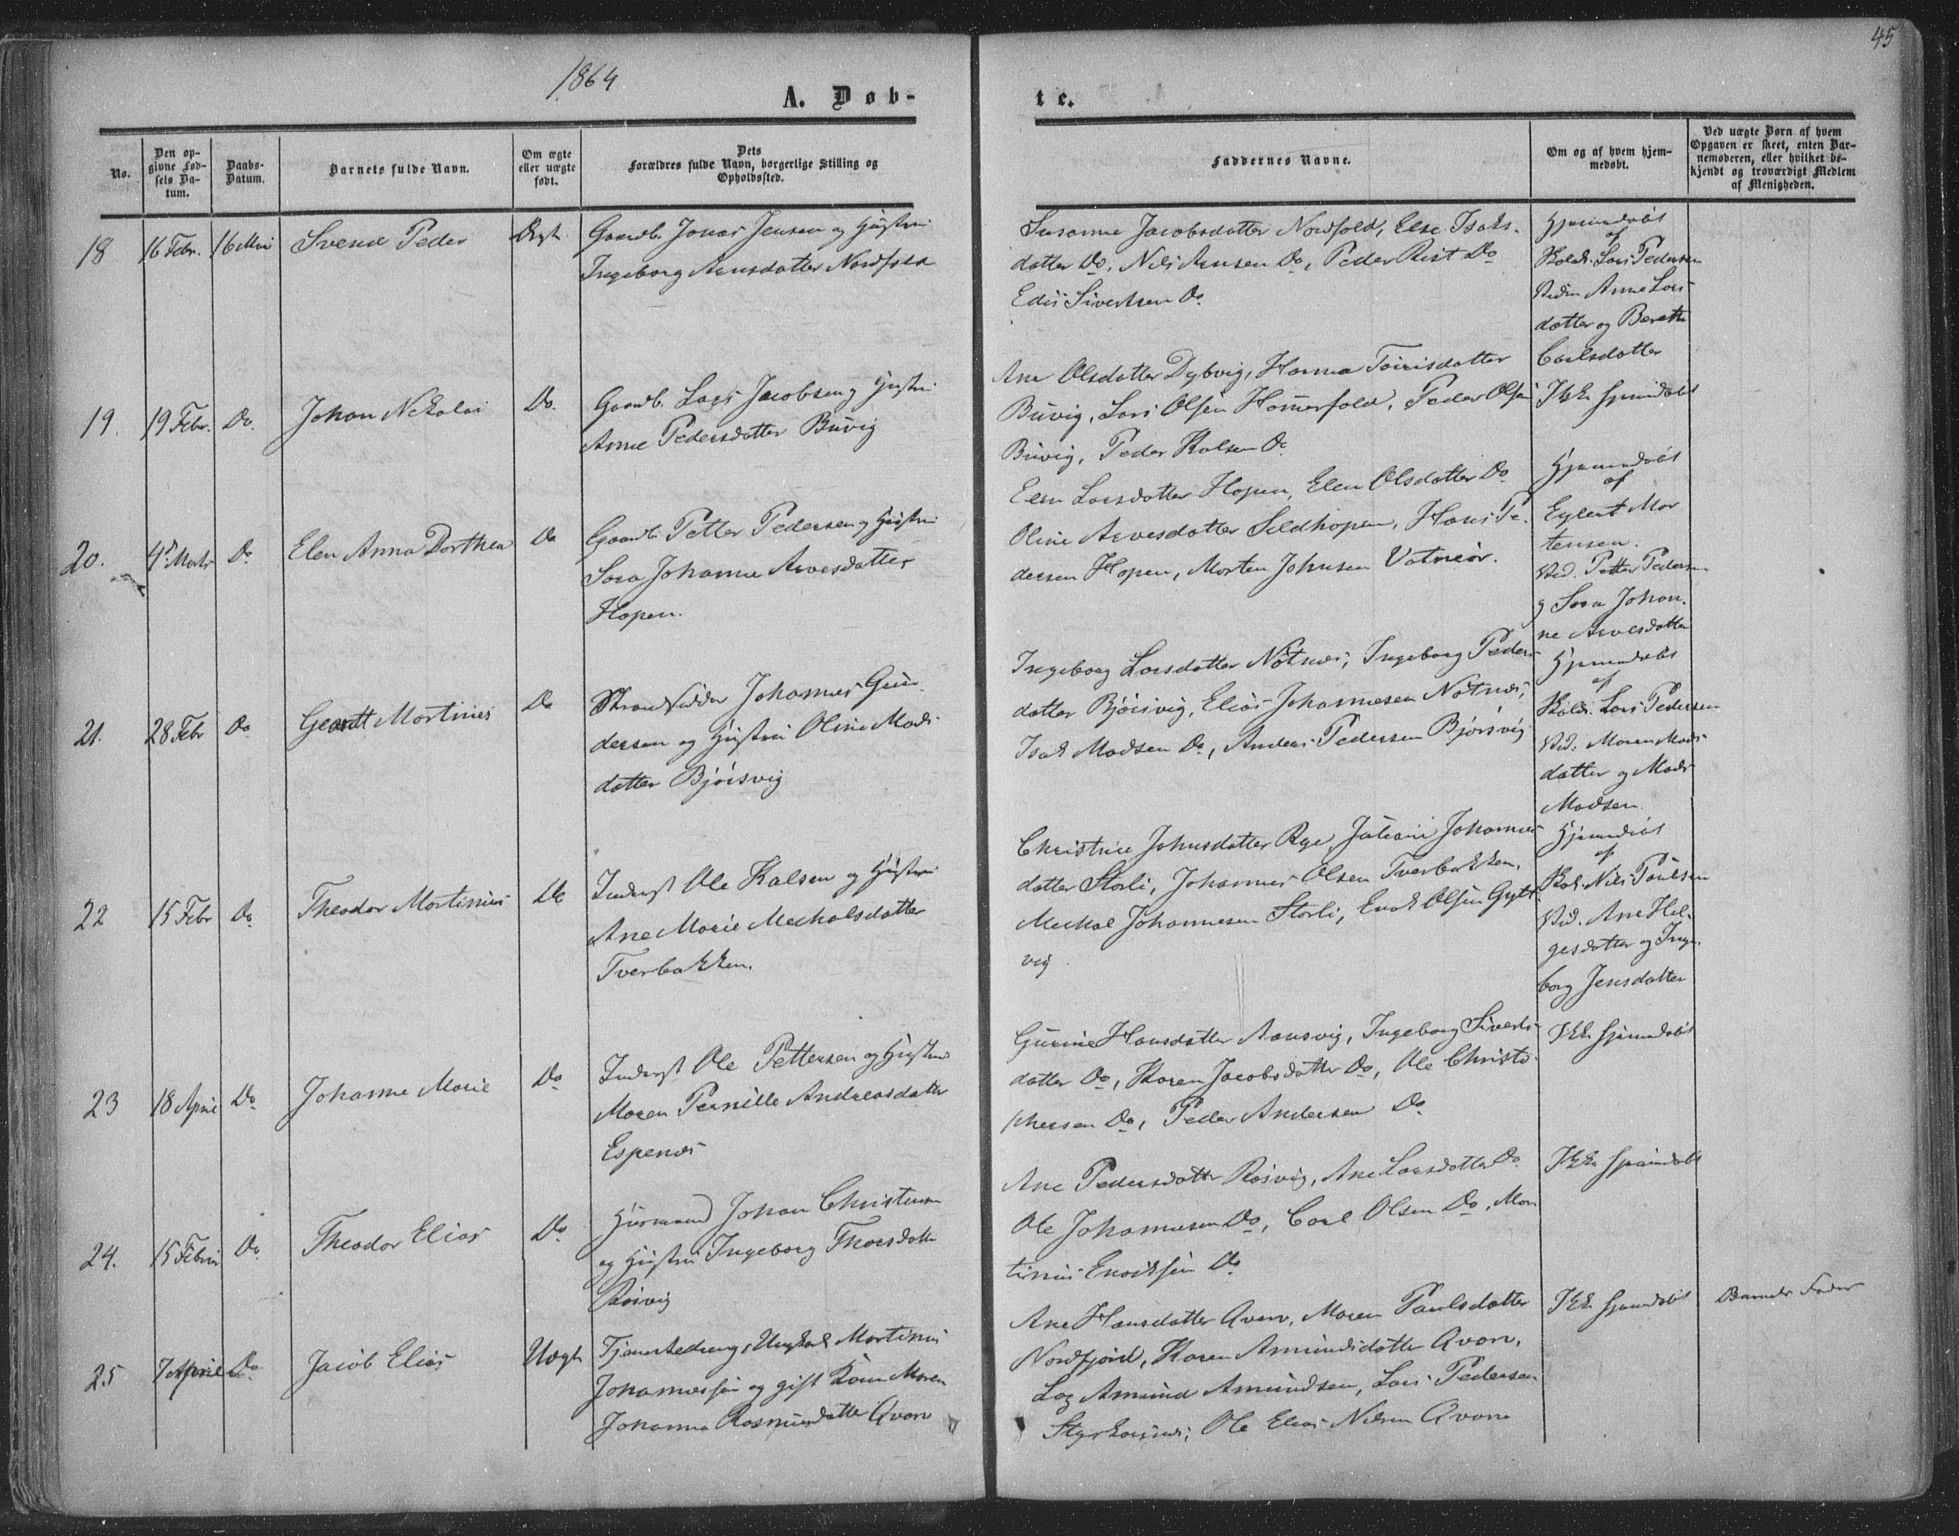 1864
45
A. Døb-
te.
No.
Den op-
givne Fød-
sels Da-
tum.
Daabs-
Datum.
Barnets fulde Navn.
Om ægte
eller uægte
født.
Dets
Forældres fulde Navn, borgerlige Stilling og
Opholdssted.
Faddernes Navne.
Om og af hvem hjem-
medøbt.
Ved uægte Børn af hvem
Opgaven er skeet, enten Bar-
nemoderen, eller hvilket be-
kjendt og troværdigt Medlem
af Menigheden.
18
16 Febr.
16 Mai
Svend Peder
Ægt
Gaardb. Jonas Jensen og Hustru
Ingeborg Arnsdatter Nordfold
Susanne Jacobsdatter Nordfold, Else Isaks-
datter Do, Nils Arnsen Do, Peder Rist Do
Edis Sivertsen Do
Hjemmedøbt
af
Kold. Lars Pedersen
Vidn Anne Lars
datter og Bereth
Carlsdatter
19.
19 Febr.
Do.
Johan Nikolai
Do.
Gaardb. Lars Jacobsen og Hustru
Anne Pedersdatter Buvig
Ane Olsdatter Dybvig, Hanna Torrisdatter
Buvig, Lars Olsen Hamerfold, Peder Olsen
Buvig, Peder Kalsen Do
Ikke hjemdøbt
20.
4de Marts
Do
Elen Anna Dorthea
Do
Gaardb. Petter Pedersen og Hustru
Sara Johanne Arvesdatter
Hopen.
Elen Larsdatter Hopen, Elen Olsdatter Do
Oline Arvesdatter Seldhopen, Hans Pe-
dersen Hopen, Morten Johnsen Vatneør.
Hjemmedøbt
af
Eylert Mor
tensen.
Vid. Petter Pedersen
og Sara Johan-
ne Arvesdatter
21.
28 Febr
Do
Geardt Mortinus
Do
Strandsidder Johannes Gun-
dersen og Hustru Oline Mads
datter Bjørsvig
Ingeborg Larsdatter Nøtnes, Ingeborg Peders
datter Bjørsvig, Elias Johannesen Nøtnes,
Isak Madsen Do, Anders Pedersen Bjørsvig
Hjemmedøbt
af
Kold. Lars Pedersen
Vid. Maren Mads
datter og Mads
Madsen.
22
15 Febr
Do
Theodor Mortinus
Do
Inderst Ole Kalsen og Hustru
Ane Marie Mechalsdatter
Tverbakken.
Christine Johnsdatter Rye, Juliane Johannes
datter Storli, Johannes Olsen Tverbakken,
Meckal Johannesen Storli, Enok Olsen Gylt-
vig.
Hjemdøbt
af
Kol. Nils Paulsen
Vid. Ane Hel-
gesdatter og Inge-
borg Jensdatter
23
18 April
Do
Johanne Marie
Do
Inderst Ole Pettersen og Hustru
Maren Pernille Andreasdatter
Espenes
Gurine Hansdatter Aansvig, Ingeborg Siverts
datter Do, Karen Jacobsdatter Do, Ole Christo-
phersen Do, Peder Andersen Do
Ikke hjemdøbt
24.
15 Februar
Do
Theodor Elias
Do
Huusmand Johan Christensen
og Hustru Ingeborg Thorsdatter
Røsvig
Ane Pedersdatter Røsvig, Ane Larsdatter Do
Ole Johannesen Do, Carl Olsen Do, Mar
tinus Enoksen Do
Ikke hjemdøbt
25
7 April
Do.
Jacob Elias
Uægt
Tjenestedreng, Ungkarl Martinus
Johannessen og gift Kone Maren
Johanna Rasmusdatter Qvarv
Ane Hansdatter Qvarv, Maren Paulsdatter
Nordfjord, Karen Amundsdatter Qvarv,
Lag Amund Amundsen, Lars Pedersen
Styrkesnes, Ole Elias Nilsen Qvarv
Ikke hjemdøbt
Barnets Fader